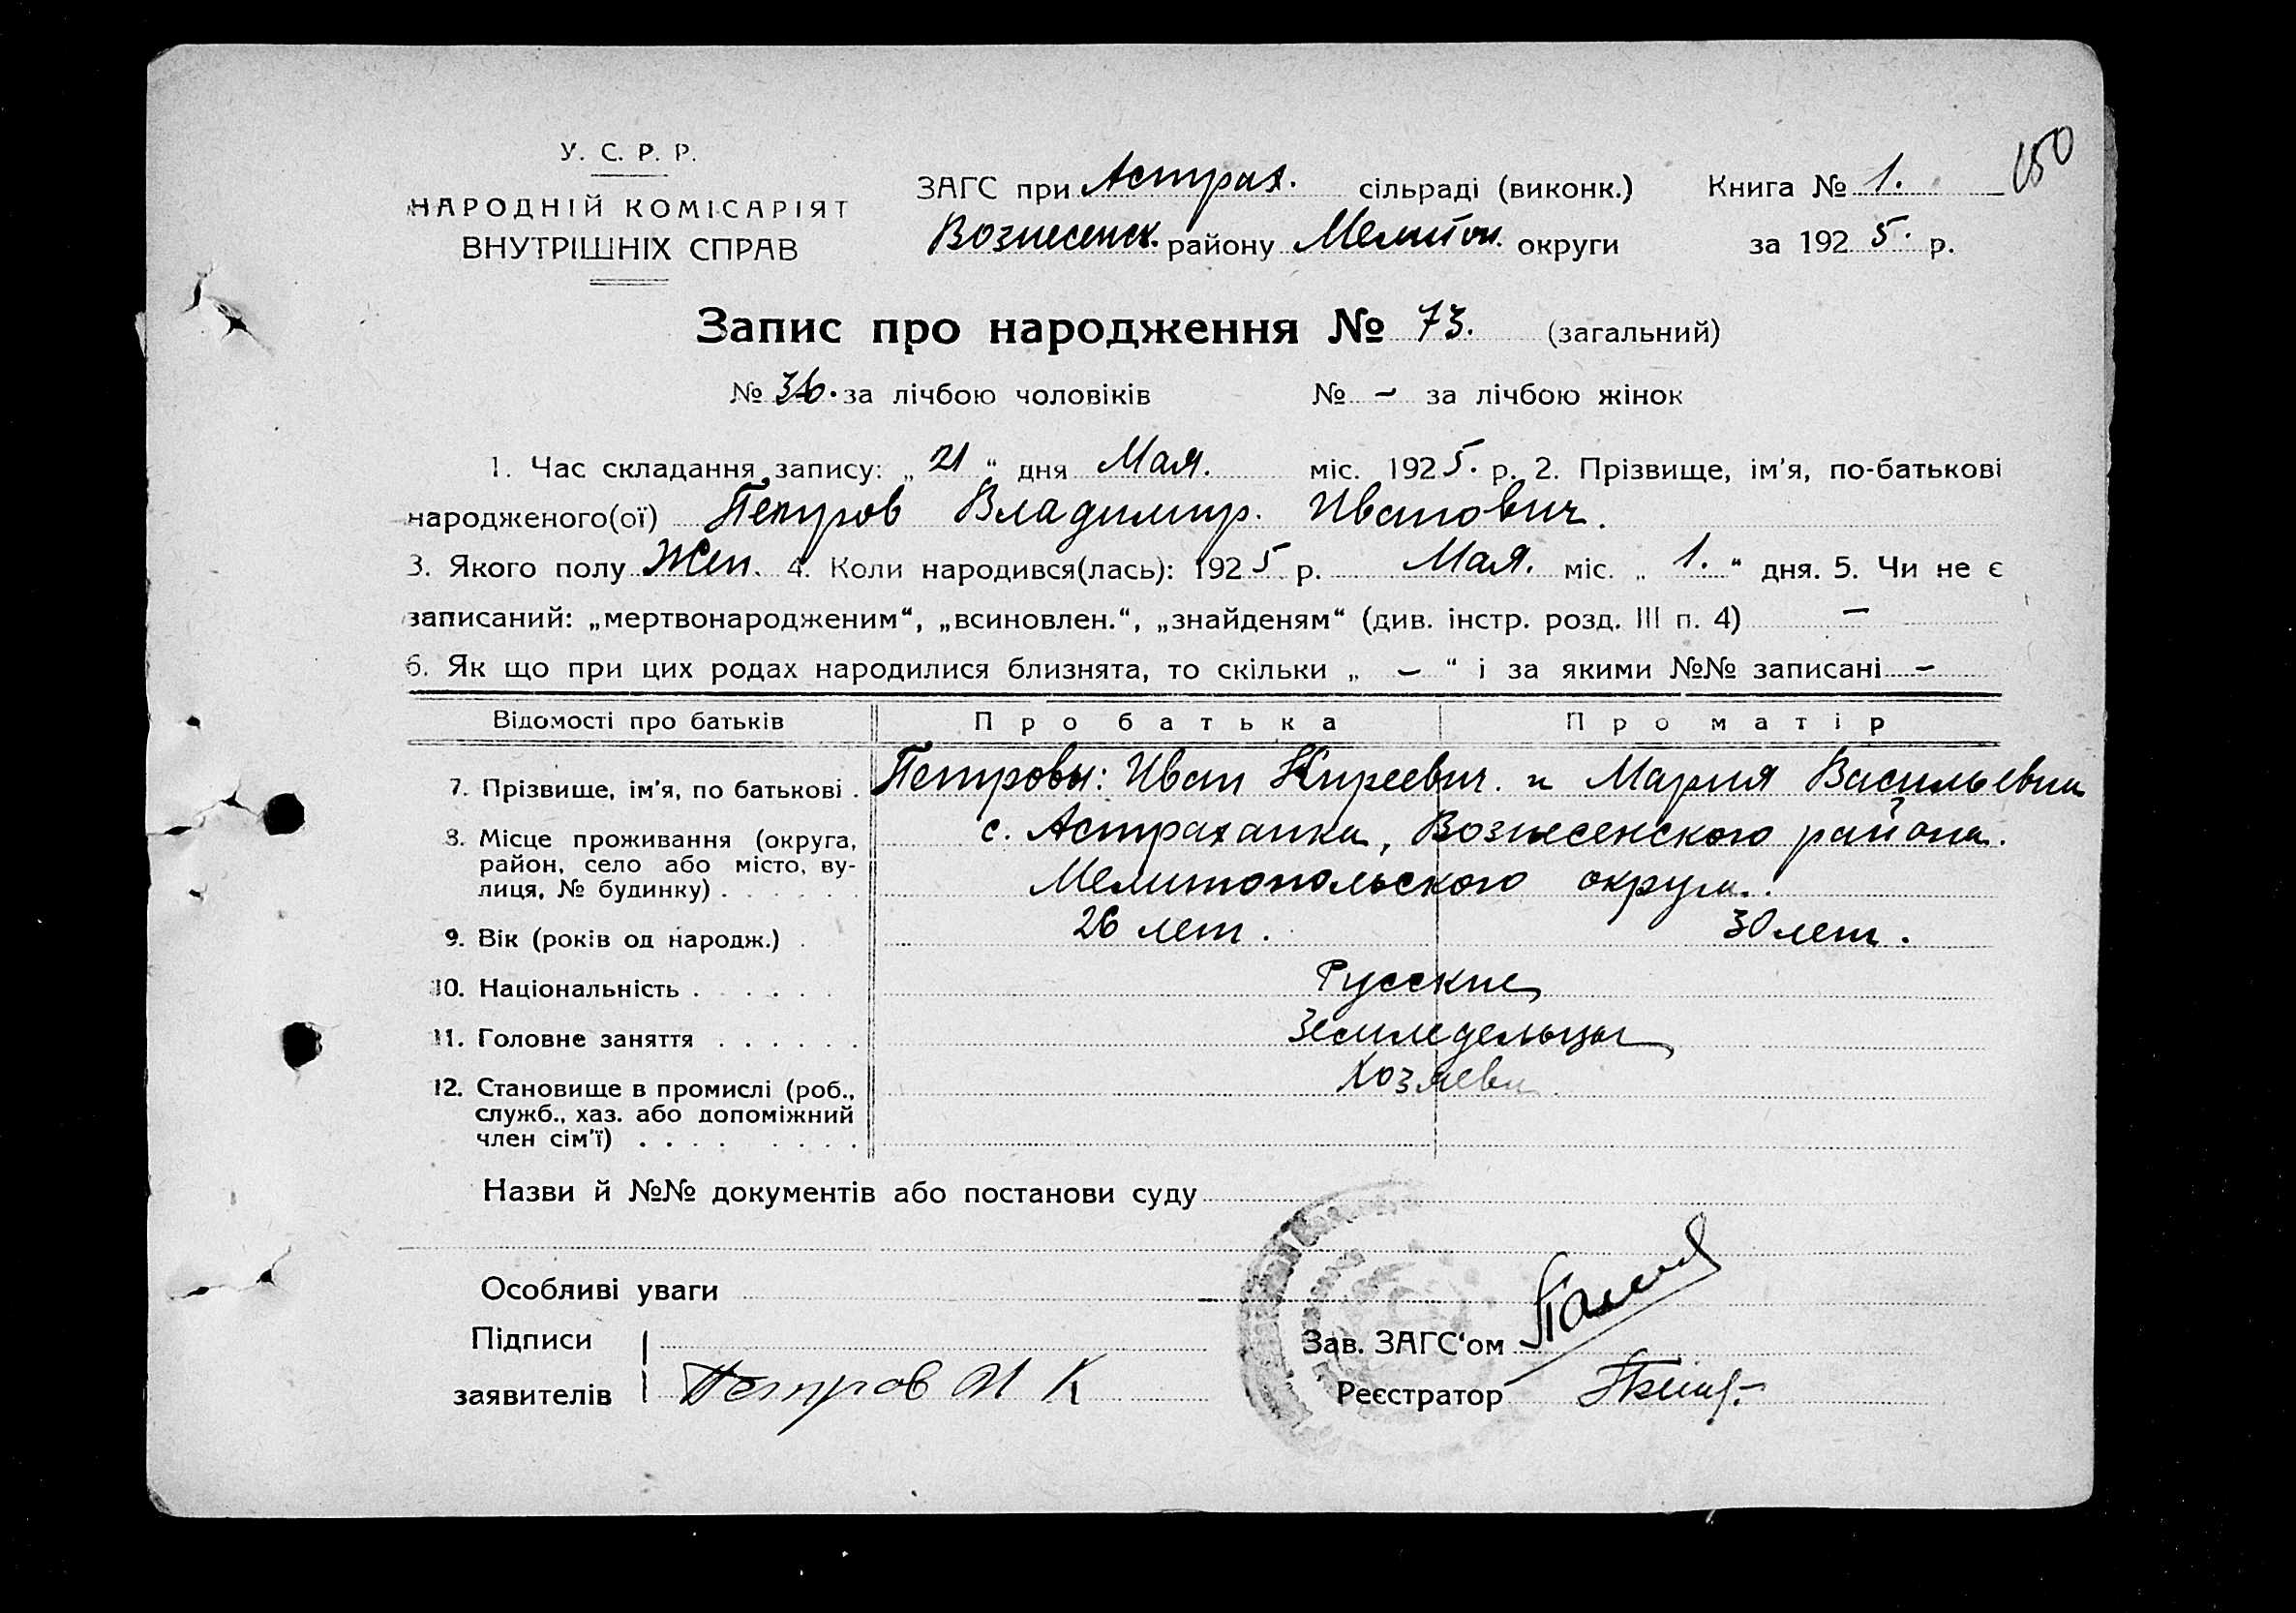 150
У. С. Р. Р.
НАРОДНІЙ КОМІСАРІЯТ
ВНУТРІШНІХ СПРАВ
ЗАГС при Астрах. сільраді (виконк.) Книга № 1.
Вознесенск. району Мелитоп. округи за 1925. р.
Запис про народження № 73. (загальний)
№ 36. за лічбою чоловіків № – за лічбою жінок
1. Час складання запису: „ 21 “ дня Мая. міс. 1925. р. 2. Прізвище, ім'я, по-батькові
народженого(ої) Петров Владимир. Иванович.
3. Якого полу Жен. 4. Коли народився(лась): 1925 р. Мая. міс. „ 1. “ дня. 5. Чи не є
записаний: „мертвонародженим“, „всиновлен.“, „знайденям“ (див. інстр. розд. III п. 4) –
6. Як що при цих родах народилися близнята, то скільки „ – “ і за якими №№ записані –
Відомості про батьків Про батька Про матір
7. Прізвище, ім'я, по батькові . Петровы: Иван Киреевич. и Мария Васильевна
8. Місце проживання (округа, с. Астраханка, Вознесенского района.
район, село або місто, ву-
лиця, № будинку) . . . . . . Мелитопольского округа.
9. Вік (років од народж.) . 26 лет. 30 лет.
10. Національність . . . . . . Русские
11. Головне заняття . . . . . . Земледельцы
12. Становище в промислі (роб., Хозяева
служб., хаз. або допоміжний
член сім'ї) . . . . . . . . .
Назви й №№ документів або постанови суду
Особливі уваги
Підписи
Зав. ЗАГС'ом
заявителів Петров И К
Реєстратор